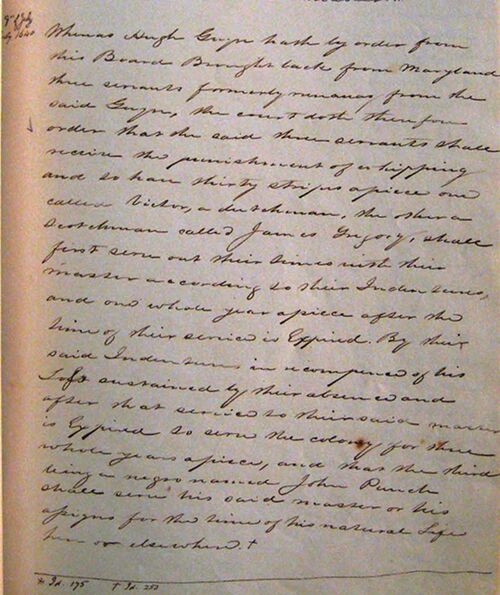 9th July
1640
Whereas Hugh Gwyn hath by order from
this Board Brought back from Maryland
three servants formerly runaway from the
said Gwyn, the court doth therefore
order that the said three servants shall
receive the punishment of whipping
and to have thirty stripes apiece one
called Victor, a dutchman, the other a
Scotchman called James Gregory, shall
first serve out their times with their
master according to their Indentures,
and one whole year apiece after the
time of their service is Expired. By their
said Indentures in recompence of his
Loss sustained by their absence and
after that service to their said master
is Expired to serve the colony for three
whole years apiece, and that the third
being a negro named John Punch
shall serve his said master or his
assigns for the time of his natural Life
here or elsewhere.†
* Id. 175 † Id. 253